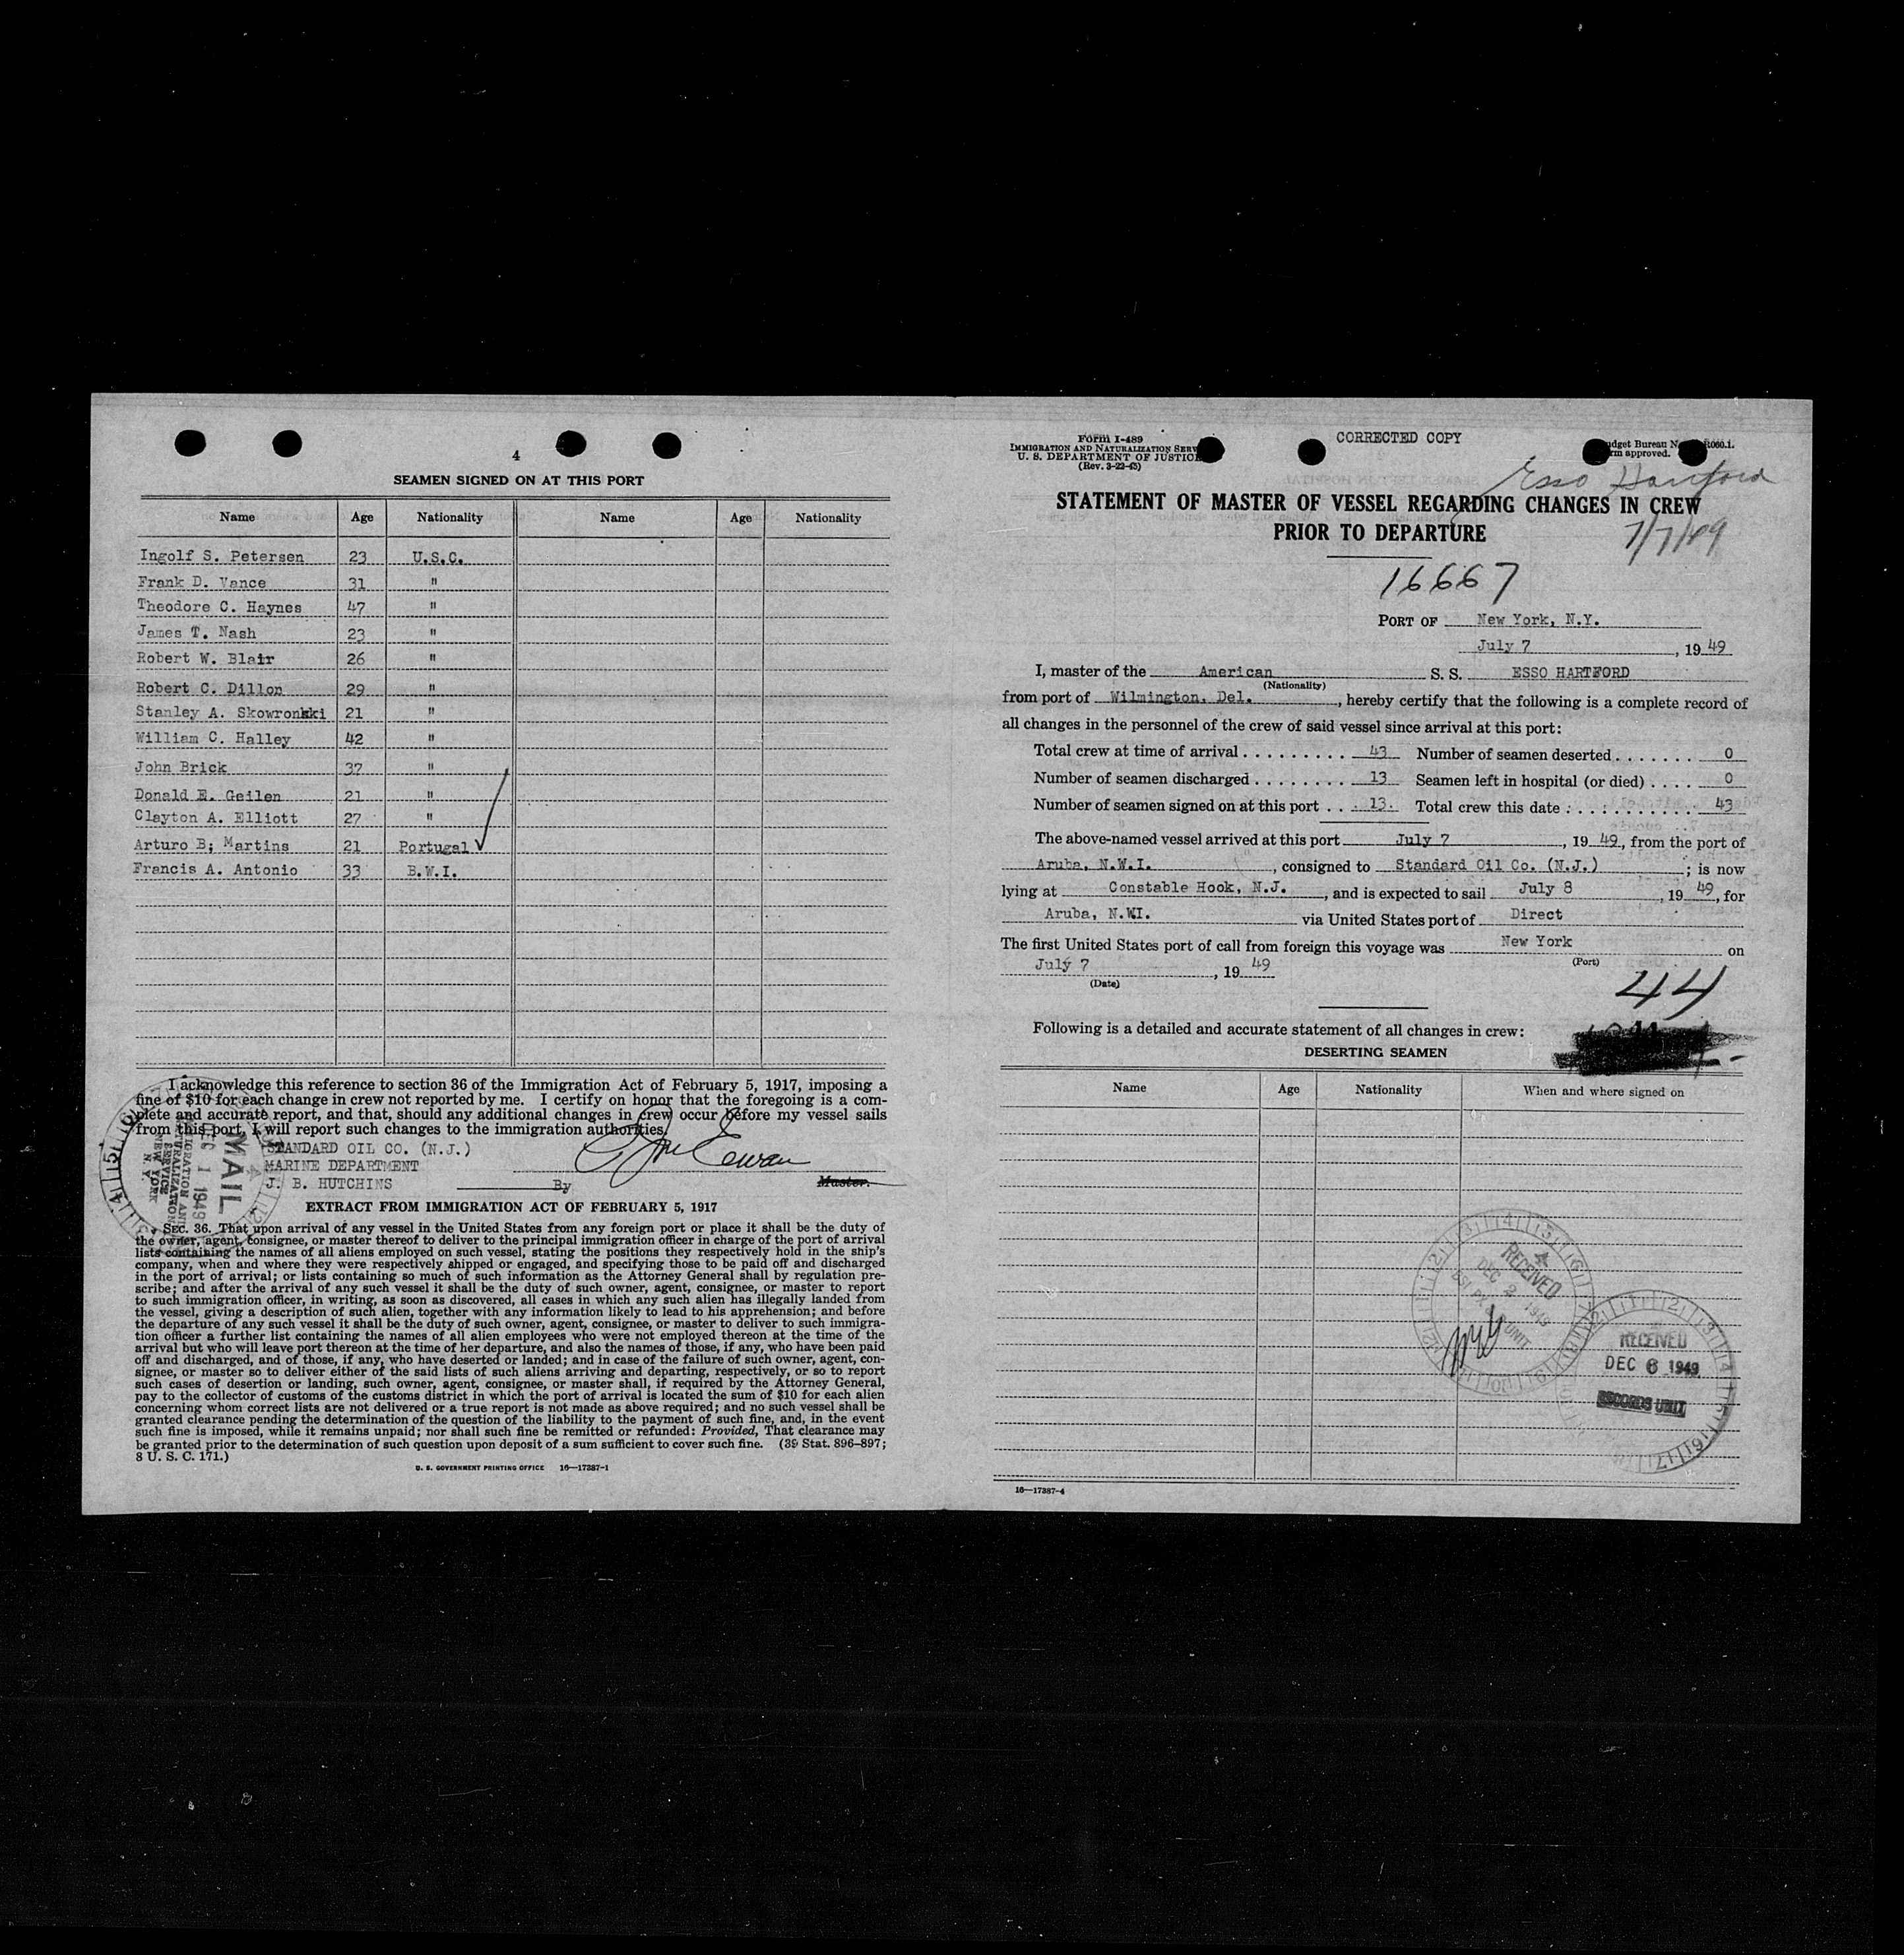 4
SEAMEN SIGNED ON AT THIS PORT
Name Age Nationality Name Age Nationality
Ingolf S. Petersen 23 U.S.C.
Frank D. Vance 31 "
Theodore C. Haynes 47 "
James T. Nash 23 "
Robert W. Blair 26 "
Robert C. Dillon 29 "
Stanley A. Skowronski 21 "
William C. Halley 42 "
John Brick 37 "
Donald E. Geilen 21 "
Clayton A. Elliott 27 "
Arturo B; Martins 21 Portugal
Francis A. Antonio 33 B.W.I.
I acknowledge this reference to section 36 of the Immigration Act of February 5, 1917, imposing a
fine of $10 for each change in crew not reported by me. I certify on honor that the foregoing is a com-
plete and accurate report, and that, should any additional changes in crew occur before my vessel sails
from this port, I will report such changes to the immigration authorities.
STANDARD OIL CO. (N.J.)
MARINE DEPARTMENT
J. B. HUTCHINS By Master.
MAIL
DEC 1 1949
IMMIGRATION AND
NATURALIZATION
SERVICE
NEW YORK
N. Y.
EXTRACT FROM IMMIGRATION ACT OF FEBRUARY 5, 1917
SEC. 36. That upon arrival of any vessel in the United States from any foreign port or place it shall be the duty of
the owner, agent, consignee, or master thereof to deliver to the principal immigration officer in charge of the port of arrival
lists containing the names of all aliens employed on such vessel, stating the positions they respectively hold in the ship's
company, when and where they were respectively shipped or engaged, and specifying those to be paid off and discharged
in the port of arrival; or lists containing so much of such information as the Attorney General shall by regulation pre-
scribe; and after the arrival of any such vessel it shall be the duty of such owner, agent, consignee, or master to report
to such immigration officer, in writing, as soon as discovered, all cases in which any such alien has illegally landed from
the vessel, giving a description of such alien, together with any information likely to lead to his apprehension; and before
the departure of any such vessel it shall be the duty of such owner, agent, consignee, or master to deliver to such immigra-
tion officer a further list containing the names of all alien employees who were not employed thereon at the time of the
arrival but who will leave port thereon at the time of her departure, and also the names of those, if any, who have been paid
off and discharged, and of those, if any, who have deserted or landed; and in case of the failure of such owner, agent, con-
signee, or master so to deliver either of the said lists of such aliens arriving and departing, respectively, or so to report
such cases of desertion or landing, such owner, agent, consignee, or master shall, if required by the Attorney General,
pay to the collector of customs of the customs district in which the port of arrival is located the sum of $10 for each alien
concerning whom correct lists are not delivered or a true report is not made as above required; and no such vessel shall be
granted clearance pending the determination of the question of the liability to the payment of such fine, and, in the event
such fine is imposed, while it remains unpaid; nor shall such fine be remitted or refunded: Provided, That clearance may
be granted prior to the determination of such question upon deposit of a sum sufficient to cover such fine. (39 Stat. 896-897;
8 U. S. C. 171.)
U. S. GOVERNMENT PRINTING OFFICE 16—17387-1
Form I-489
IMMIGRATION AND NATURALIZATION SERV
U. S. DEPARTMENT OF JUSTICE
(Rev. 3-22-45)
CORRECTED COPY
dget Bureau N R060.1.
rm approved.
Esso Hartford
STATEMENT OF MASTER OF VESSEL REGARDING CHANGES IN CREW
PRIOR TO DEPARTURE
7/7/49
16667
PORT OF New York, N.Y.
July 7, 1949
I, master of the American S. S. ESSO HARTFORD
(Nationality)
from port of Wilmington. Del., hereby certify that the following is a complete record of
all changes in the personnel of the crew of said vessel since arrival at this port:
Total crew at time of arrival 43 Number of seamen deserted 0
Number of seamen discharged 13 Seamen left in hospital (or died) 0
Number of seamen signed on at this port 13 Total crew this date 43
The above-named vessel arrived at this port July 7, 1949, from the port of
Aruba, N.W.I., consigned to Standard Oil Co. (N.J.); is now
lying at Constable Hook, N.J., and is expected to sail July 8, 1949, for
Aruba, N.WI. via United States port of Direct
The first United States port of call from foreign this voyage was New York on
(Port)
July 7, 1949
(Date)
44
Following is a detailed and accurate statement of all changes in crew:
DESERTING SEAMEN
Name Age Nationality When and where signed on
RECEIVED
DEC 2 1949
UNIT
RECEIVED
DEC 6 1949
RECORDS UNIT
16—17387-4